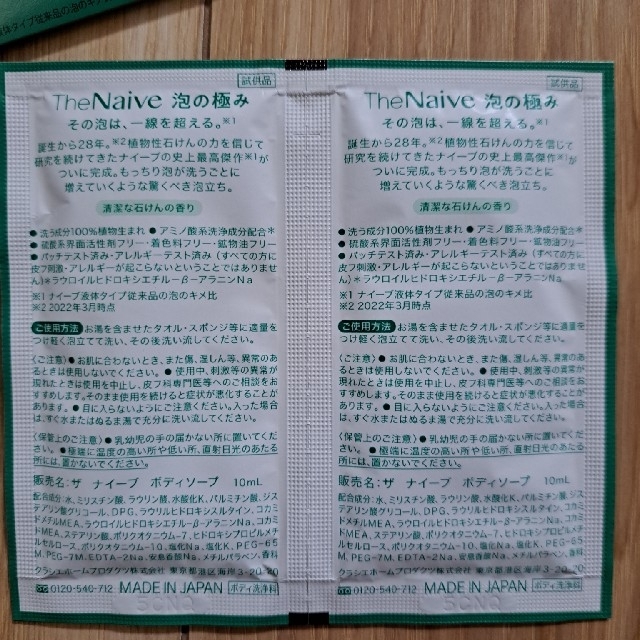 液体タイプ従来品の泡のキ
試供品
TheNaive 泡の極み
その泡は、一線を超える。※1
誕生から28年。※2植物性石けんの力を信じて
研究を続けてきたナイーブの史上最高傑作※1が
ついに完成。もっちり泡が洗うごとに
増えていくような驚くべき泡立ち。
清潔な石けんの香り
●洗う成分100%植物生まれ ●アミノ酸系洗浄成分配合*
●硫酸系界面活性剤フリー・着色料フリー・鉱物油フリー
●パッチテスト済み・アレルギーテスト済み (すべての方に
皮フ刺激・アレルギーが起こらないということではありませ
ん)*ラウロイルヒドロキシエチル-β-アラニンNa
※1 ナイーブ液体タイプ従来品の泡のキメ比
※2 2022年3月時点
ご使用方法 お湯を含ませたタオル・スポンジ等に適量を
つけ軽く泡立てて洗い、その後洗い流してください。
〈ご注意〉●お肌に合わないとき、また傷、湿しん等、異常のあ
るときは使用しないでください。 ●使用中、刺激等の異常が
現れたときは使用を中止し、皮フ科専門医等へのご相談をお
すすめします。そのまま使用を続けると症状が悪化することが
あります。 ●目に入らないようにご注意ください。入った場合
は、すぐ水またはぬるま湯で充分に洗い流してください。
〈保管上のご注意〉●乳幼児の手の届かない所に置いてくだ
さい。 ●極端に温度の高い所や低い所、直射日光のあたる
所には、置かないでください。
販売名:ザ ナイーブ ボディソープ 10mL
配合成分:水、ミリスチン酸、ラウリン酸、水酸化K、パルミチン酸、ジス
テアリン酸グリコール、DPG、ラウリルヒドロキシスルタイン、コカミ
ドメチルMEA、ラウロイルヒドロキシエチル-β-アラニンNa、コカミ
ドMEA、ステアリン酸、ポリクオタニウム-7、ヒドロキシプロピルメチ
ルセルロース、ポリクオタニウム-10、塩化Na、塩化K、PEG-65
M、PEG-7M、EDTA-2Na、安息香酸Na、メチルパラベン、香料
クラシエホームプロダクツ株式会社 東京都港区海岸3-20-20
0120-540-712 MADE IN JAPAN ボディ洗浄料
試供品
TheNaive 泡の極み
その泡は、一線を超える。※1
誕生から28年。※2植物性石けんの力を信じて
研究を続けてきたナイーブの史上最高傑作※1が
ついに完成。もっちり泡が洗うごとに
増えていくような驚くべき泡立ち。
清潔な石けんの香り
●洗う成分100%植物生まれ ●アミノ酸系洗浄成分配合*
●硫酸系界面活性剤フリー・着色料フリー・鉱物油フリー
●パッチテスト済み・アレルギーテスト済み (すべての方に
皮フ刺激・アレルギーが起こらないということではありませ
ん)*ラウロイルヒドロキシエチル-β-アラニンNa
※1 ナイーブ液体タイプ従来品の泡のキメ比
※2 2022年3月時点
ご使用方法 お湯を含ませたタオル・スポンジ等に適量を
つけ軽く泡立てて洗い、その後洗い流してください。
〈ご注意〉●お肌に合わないとき、また傷、湿しん等、異常のあ
るときは使用しないでください。 ●使用中、刺激等の異常が
現れたときは使用を中止し、皮フ科専門医等へのご相談をお
すすめします。そのまま使用を続けると症状が悪化することが
あります。 ●目に入らないようにご注意ください。入った場合
は、すぐ水またはぬるま湯で充分に洗い流してください。
〈保管上のご注意〉●乳幼児の手の届かない所に置いてくだ
さい。 ●極端に温度の高い所や低い所、直射日光のあたる
所には、置かないでください。
販売名:ザ ナイーブ ボディソープ 10mL
配合成分:水、ミリスチン酸、ラウリン酸、水酸化K、パルミチン酸、ジス
テアリン酸グリコール、DPG、ラウリルヒドロキシスルタイン、コカミ
ドメチルMEA、ラウロイルヒドロキシエチル-β-アラニンNa、コカミ
ドMEA、ステアリン酸、ポリクオタニウム-7、ヒドロキシプロピルメチ
ルセルロース、ポリクオタニウム-10、塩化Na、塩化K、PEG-65
M、PEG-7M、EDTA-2Na、安息香酸Na、メチルパラベン、香料
クラシエホームプロダクツ株式会社 東京都港区海岸3-20-20
0120-540-712 MADE IN JAPAN ボディ洗浄料